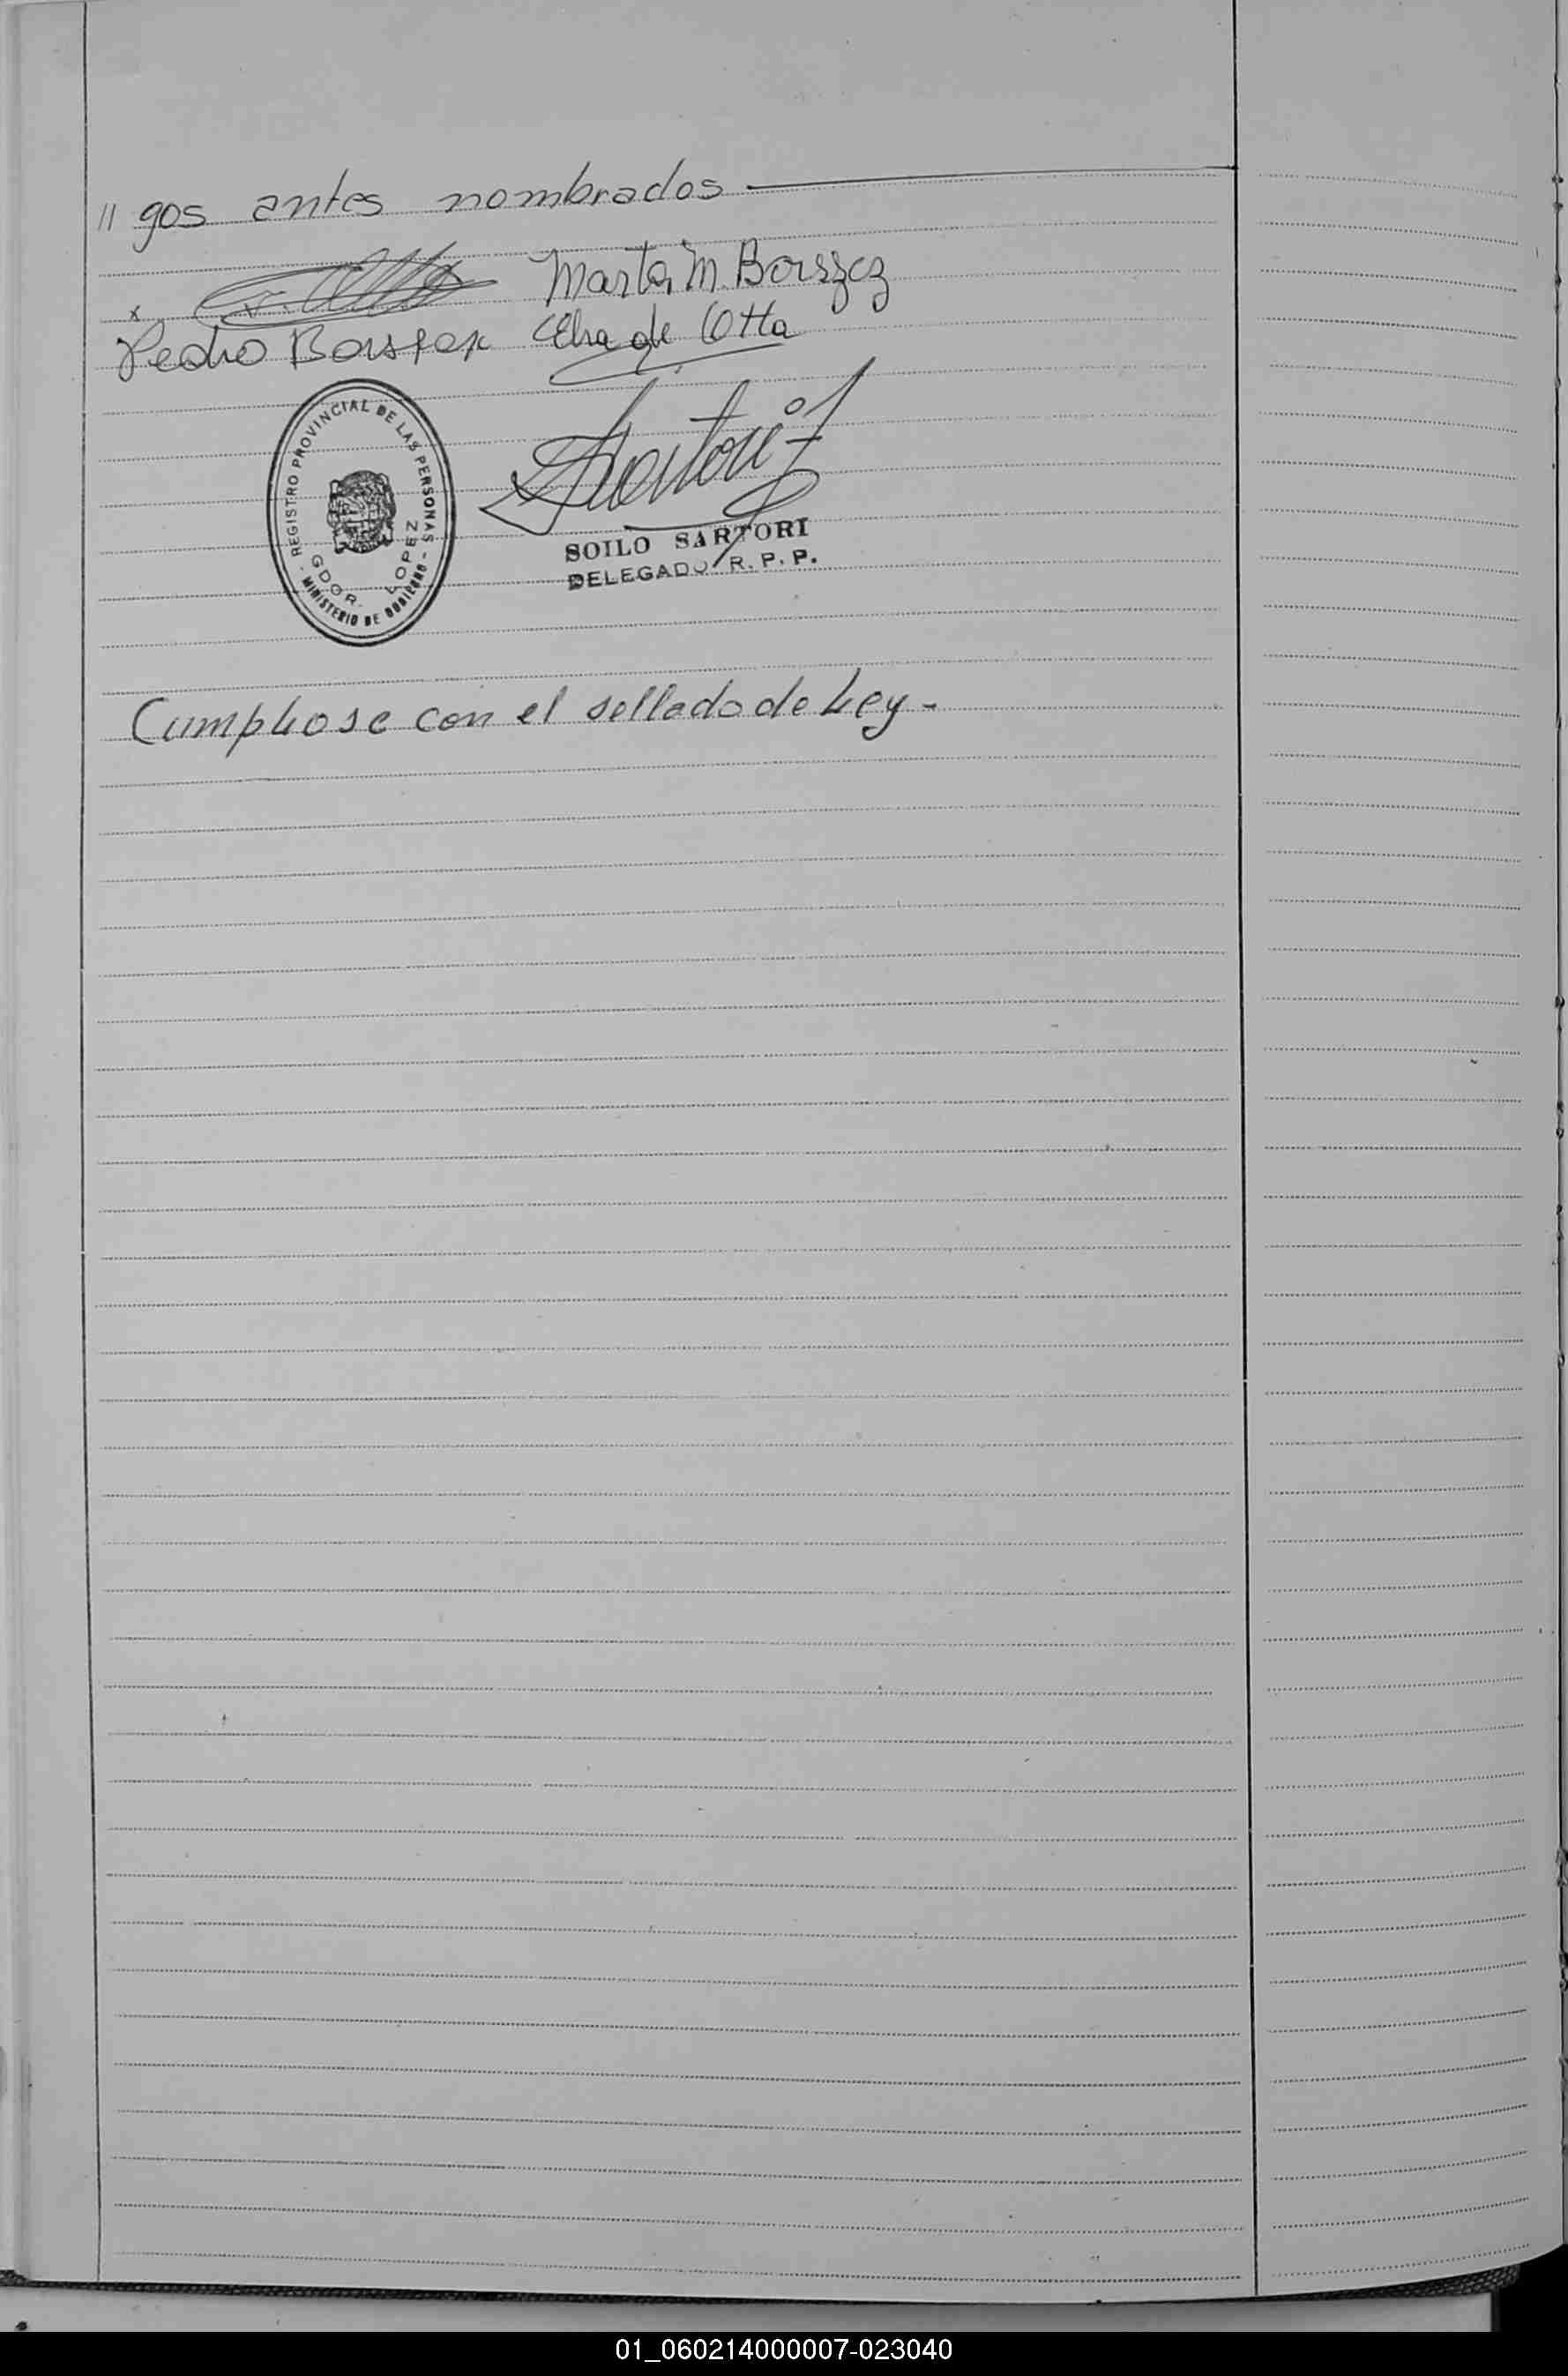 // gos antes nombrados
x
Marta M. Boisszez
Pedro
Elva de Otta
REGISTRO PROVINCIAL DE LAS PERSONAS
- MINISTERIO DE GOBIERNO -
GDOR. LOPEZ
SOILO SARTORI
DELEGADO R. P. P.
Cumpliose con el sellado de Ley -
01_060214000007-023040